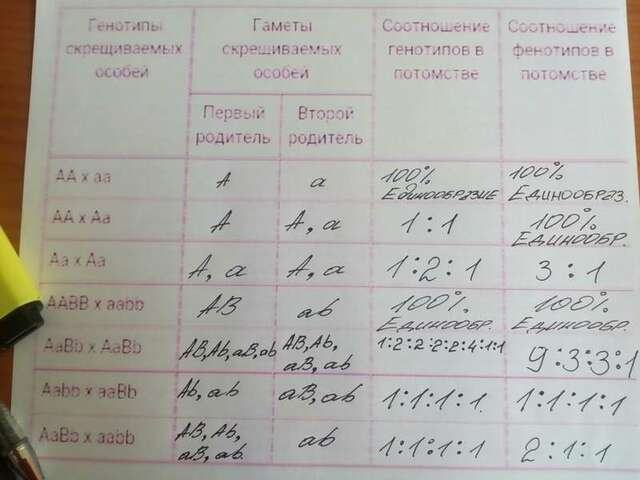 Генотипы скрещиваемых особей
Гаметы скрещиваемых особей
Соотношение генотипов в потомстве
Соотношение фенотипов в потомстве
Первый родитель
Второй родитель
AA x aa A a 100% Единообразие 100% Единообраз.
AA x Aa A A, a 1:1 100% Единообр.
Aa x Aa A, a A, a 1:2:1 3:1
AABB x aabb AB ab 100% Единообр. 100% Единообр.
AaBb x AaBb AB,Ab,aB,ab AB,Ab, aB,ab 1:2:2:2:2:4:1:1 9:3:3:1
Aabb x aaBb Ab,ab aB,ab 1:1:1:1. 1:1:1:1
AaBb x aabb AB, Ab, aB,ab. ab 1:1:1:1 2:1:1